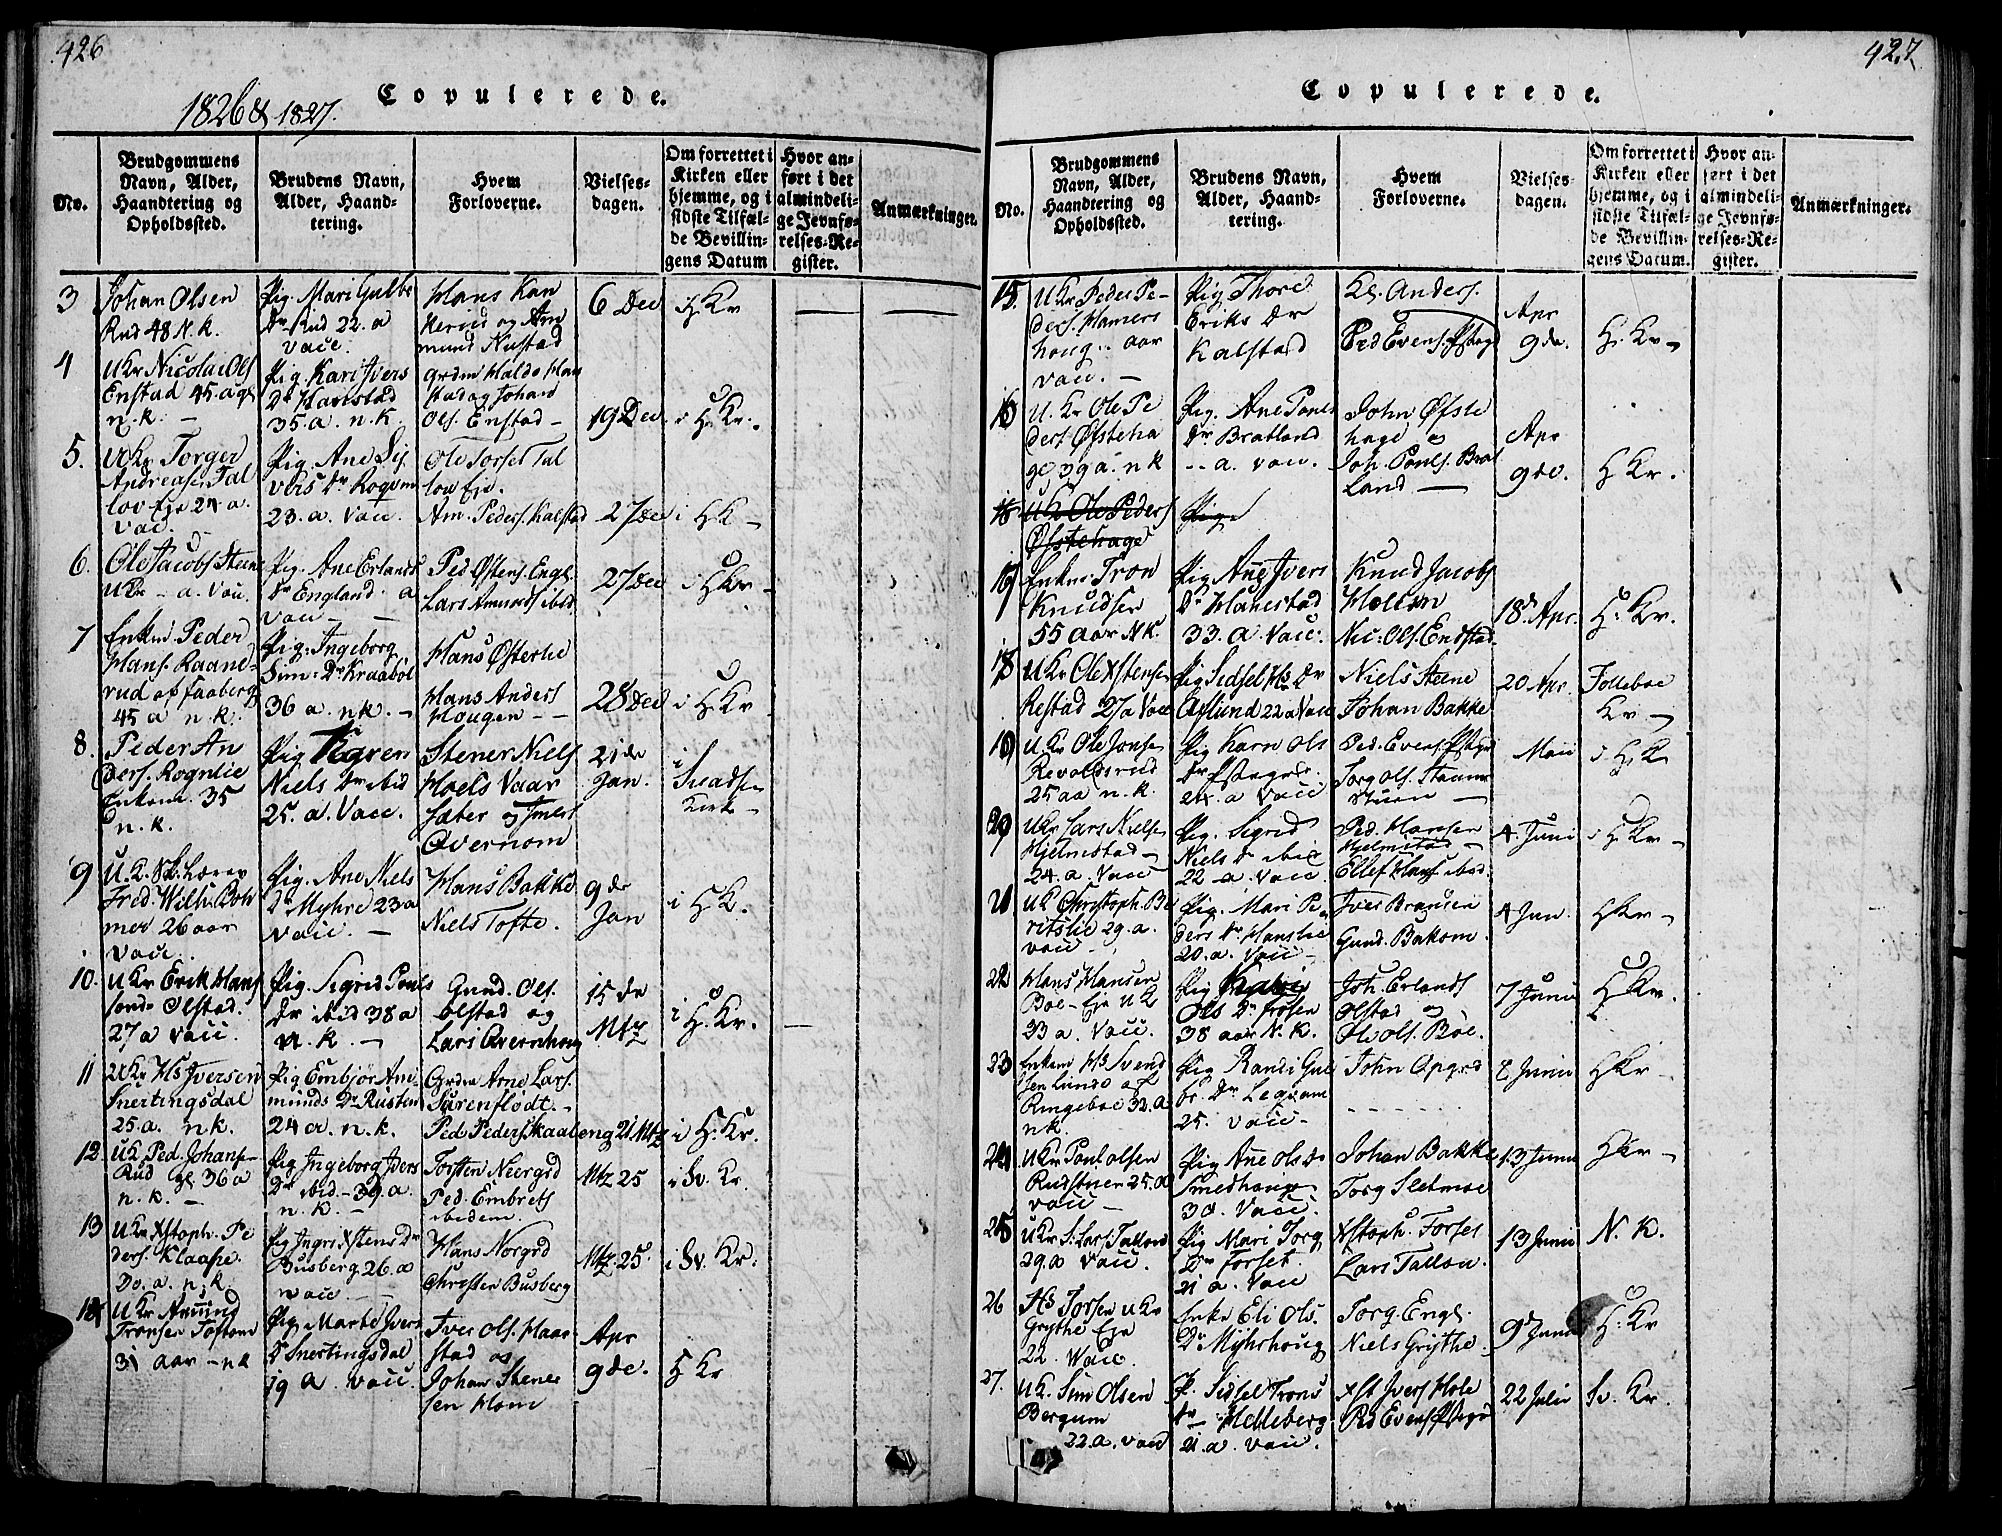 426
Copulerede.
1826 & 1827.
No.
Brudgommens
Navn, Alder,
Haandtering og
Opholdssted.
Brudens Navn,
Alder, Haand-
tering.
Hvem
Forloverne.
Vielses-
dagen.
Om forrettet i
Kirken eller
hjemme, og i
sidste Tilfæl-
de Bevillin-
gens Datum
Hvor an-
ført i det
almindeli-
ge Jevnfø-
relses-Re-
gister.
Anmærkninger.
3
Johan Olsen
Rud 48 N.k.
Pig. Mari Gulbr
Dr Rud 22. a
vacc.
Hans Kan
kerud og Am
mund Nustad
6 Dec
i H Kr
4
UKr Nicolai Ols
Enstad 45. a gl
n.k. –
Pig. Kari Ivers
Dr Hanestad
35. a. n.k.
Grdm Halde Han
stad og Johan
Ols. Enstad –
19 Dec.
i H. Kr.
5.
UKr Torger
Andreasen Tal
lov Eje 24. a.
vac.
Pig. Ane Sy
vers Dr Rogum
23. a. Vacc.
Ole Torset Tal
lov Eje.
Am. Peders. Kalstad
27 Dec
i H K –
6.
Ole Jacobs Steene
UKr – a. Vacc.
Pig. Ane Erlands
Dr England. a
vacc –
Ped. Østens. Engl.
Lars Amunds ibid
27 Dec
i H Kr –
7
Enkm. Peder
Hans. Raane-
rud af Faaberg
45 a n.k.
Pig. Ingeborg
Sim: Dr Kraabøl
36 a. n.k. –
Hans Østerlie
Hans Anders
Hougen – –
28 Dec
i H. Kr
8.
Peder An
ders. Rognlie
Enkem. 35
n.k.
Pig Karen
Niels Dr ibid
25. a. Vacc.
Stener Niels
Hoels Vaar
sæter og
Overnom
21 de
Jan.
i
Svadsu
Kirk –
9
U.K. Sk. Lærer
Fred. Wilh. Boh
mer 26 aar
vacc.
Pig. Ane Niels
Dr Myhre 23 a
vacc. –
Hans Bakke
Niels Tofte.
9 de
Jan
i H K.
10.
UKr Erik Hans
sønn Olstad.
27 a vacc.
Pig. Sigrid Pouls
Dr ibid 38 a
n.k. –
Gund. Ols.
Olstad og
Lars Overnhoug
15 de
Mtz
i H. Kr.
11
UKr Hs Iversen
Snertingsdal
25. a. n.k.
Pig Embjør Ane
munds Dr Rusten
24 a. n.k.
Grdm Arne Lars.
Surenflødt. –
Ped. Peders. Skaaleng
21 Mtz
i H. Kr.
12.
UKr Ped. Johans
Rud gl. 36 a
n.k. –
Pig Ingeborg Ivers
Dr ibid – 39. a.
n.k. –
Torsten Neergrd
Ped. Embrets
ibidem.
Mtz 25
i Sv. Kr.
13
UKr Xstoph. Pe
ders. Klaape.
Do. a. n.k.
Pig Ingri Xstens Dr
Busberg 26. a
vacc. –
Hans Norgrd
Christen Busberg
Mtz. 25.
i Sv. Kr.
14
UKr Amund
Tronsen Toftom
31 aar – nk
Pig. Marte Ivers
Dr Snertingsdal
19 a. vacc.
Iver Ols. Haar
stad og
Johan Stene
sen Hom
Apr
9 de.
H Kr
427
Copulerede.
No.
Brudgommens
Navn, Alder,
Haandtering og
Opholdssted.
Brudens Navn,
Alder, Haand-
tering.
Hvem
Forloverne.
Vielses-
dagen.
Om forrettet i
Kirken eller
hjemme, og i
sidste Tilfæl-
de Bevillin-
gens Datum.
Hvor an-
ført i det
almindeli-
ge Jevnfø-
relses-Re-
gister.
Anmærkninger.
15.
UKr Peder Pe-
ders. Hamers
houg .. aar
vacc. –
Pig Thore
Eriks Dr
Kalstad
Kl. Anders.
Ped Evens.
Apr
9 de.
H. Kr –
16
U. Kr Ole Pe
ders. Østeha
ge, 39 a. n k
Pig. Ane Pouls
Dr Bratland
-- a. vacc.
John Øfste
hage og
Joh. Pouls. Brat
land –
Apr
9 de.
H Kr.
UKr Ole Peders
Øfstehage
Pige
17
Enkm Tron
Knudsen
55 aar N K.
Pig Ane Ivers
Dr Hanestad
33. a. Vacc.
Knud Jacobs
Nic: Ols. Endstad.
18. Apr.
H. Kr.
18
UKr Ole Xstensen
Restad 27 a Vacc
Pig Sidsel Hs Dr
Aslund 22 a Vacc
Niels Steene
Johan Bakke
20 Apr.
Folleboe
Kr –
19
UKr Ole Jonsen
Revoldsrud
25 aa n.k.
Pig Karn Ols
Dr
24. a vacc
Ped. Evens.
Torg Ols. Stamm
stuen –
Maii
i H. K
20
UKr Lars Nielsen
Hjelmstad –
24. a. Vacc
Pig. Sigrid
Niels Dr ibid
22 a. vacc
Ped. Hansen
Hjelmstad –
Ellef Hans. ibid.
4. Juni
i H Kr –
21
UK Christoph. Be
ritslie 29. a.
vacc
Pig. Mari Pe
ders Dr Hanslie
20. a. vacc –
Iver Bransen
Gund. Bakom.
4 Jun.
H Kr –
22
Hans Hansen
Boe – Eje UKr
33 a. Vacc.
Pig Kari
Ols Dr Frøsen
38 aar N. K.
Joh. Erlands
Olstad og
Ole Ols. Böe.
7 Junii
H Kr.
23
Enkem Hs Svend
sen Lunde af
Ringeboe 32. a
nk.
Pig Randi Gul
br. Dr Legum
25. vacc –
John Opgrd
8 Junii
H Kr –
24
UKr Poul Olsen
Rudstuen 25. a
vacc –
Pig Ane Ols Dr
Smedhaugen
30. Vacc.
Johan Bakke
Torg Sletmoe
13 Junii
H Kr –
25
UKr S. Lars. Tallov
29. a vacc.
Pig Mari Torg
Dr Torset.
21 a. Vacc
Xstoph. Torset
Lars Tallov.
13 Junii
N. K.
26
Hs Torsen UKr
Grythe Eje
22. Vacc.
Enke Eli Ols.
Dr Myhrhoug
Torg. Engl.
Niels Grythe.
9 Junii
H. Kr
27.
UK. Sim Olsen
Bergum
22. a. vacc
P. Sidsel Trons
Dr Melleberg
21. a. vacc.
Xst. Ivers Hole
Ped Evens
22 Julii
Sv. Kr.